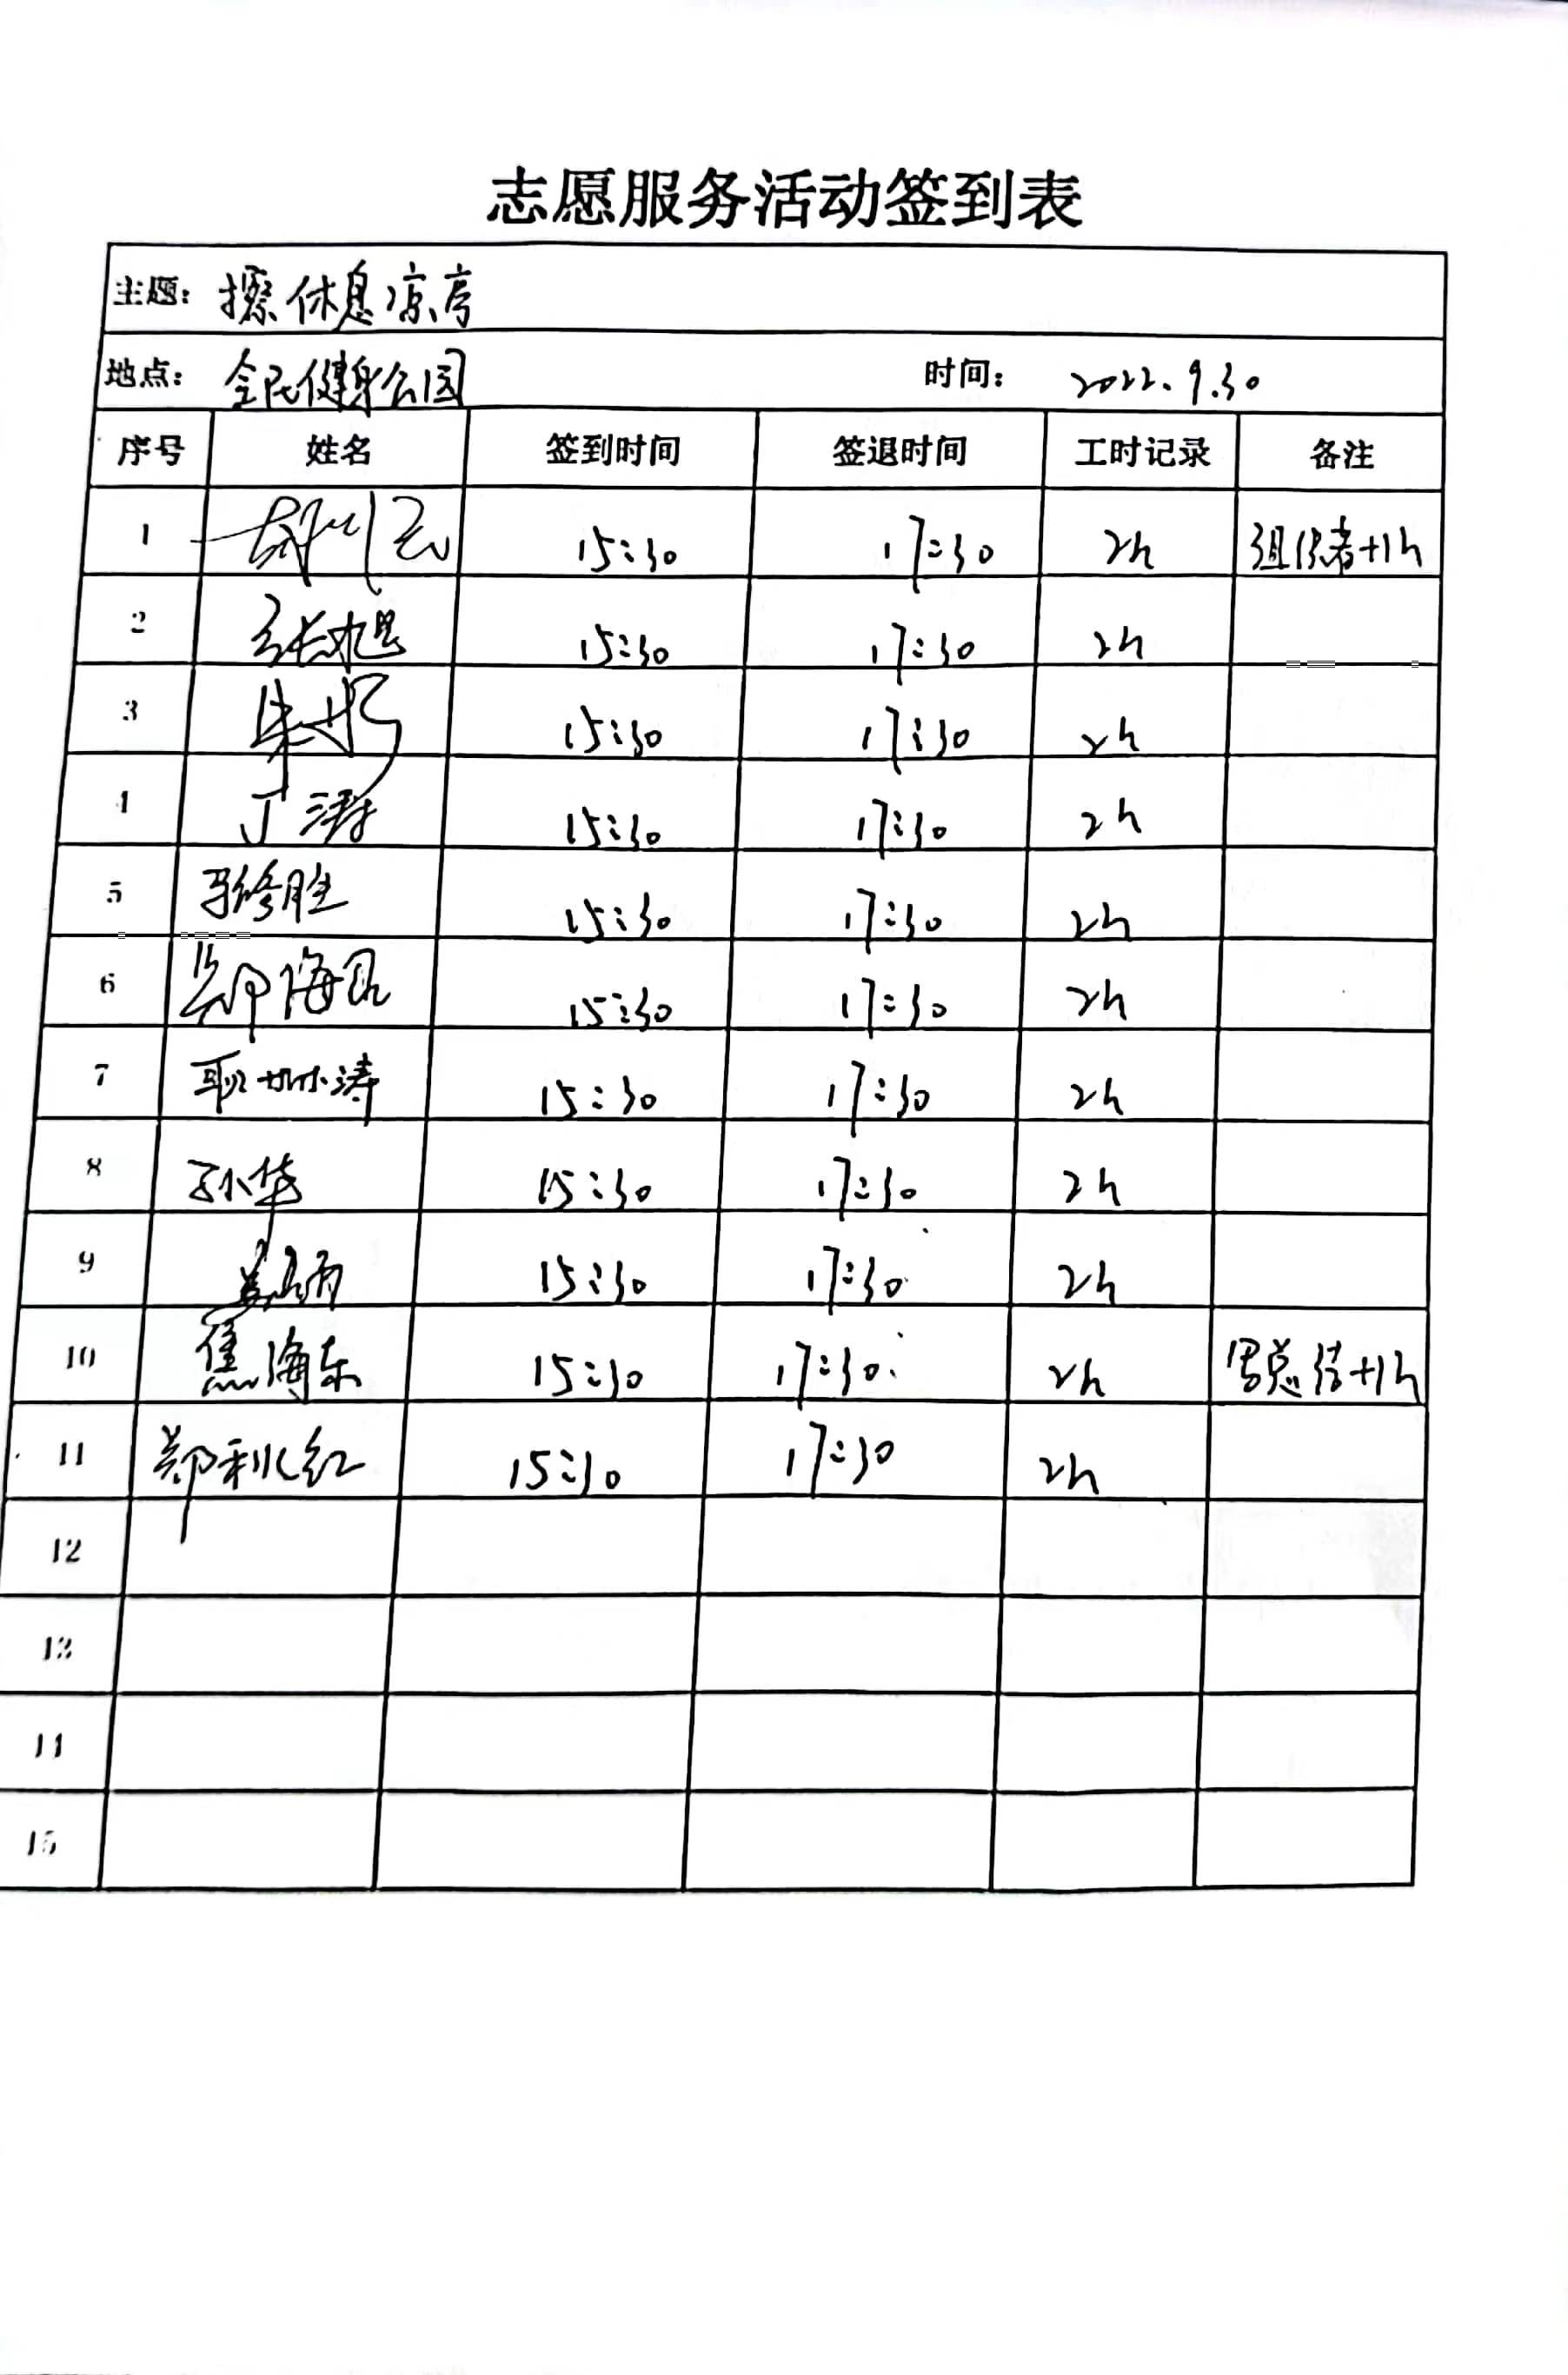 志愿服务活动签到表
主题: 擦休息凉亭
地点: 全民健身公园 时间: 2022.9.30
序号 姓名 签到时间 签退时间 工时记录 备注
1 15:30 17:30 2h 组织者+1h
2 张旭 15:30 17:30 2h
3 15:30 17:30 2h
4 丁涛 15:30 17:30 2h
5 修胜 15:30 17:30 2h
6 郑海昆 15:30 17:30 2h
7 涛 15:30 17:30 2h
8 孙华 15:30 17:30 2h
9 15:30 17:30 2h
10 焦海东 15:30 17:30 2h 写总结+1h
11 郑利红 15:30 17:30 2h
12
13
14
15